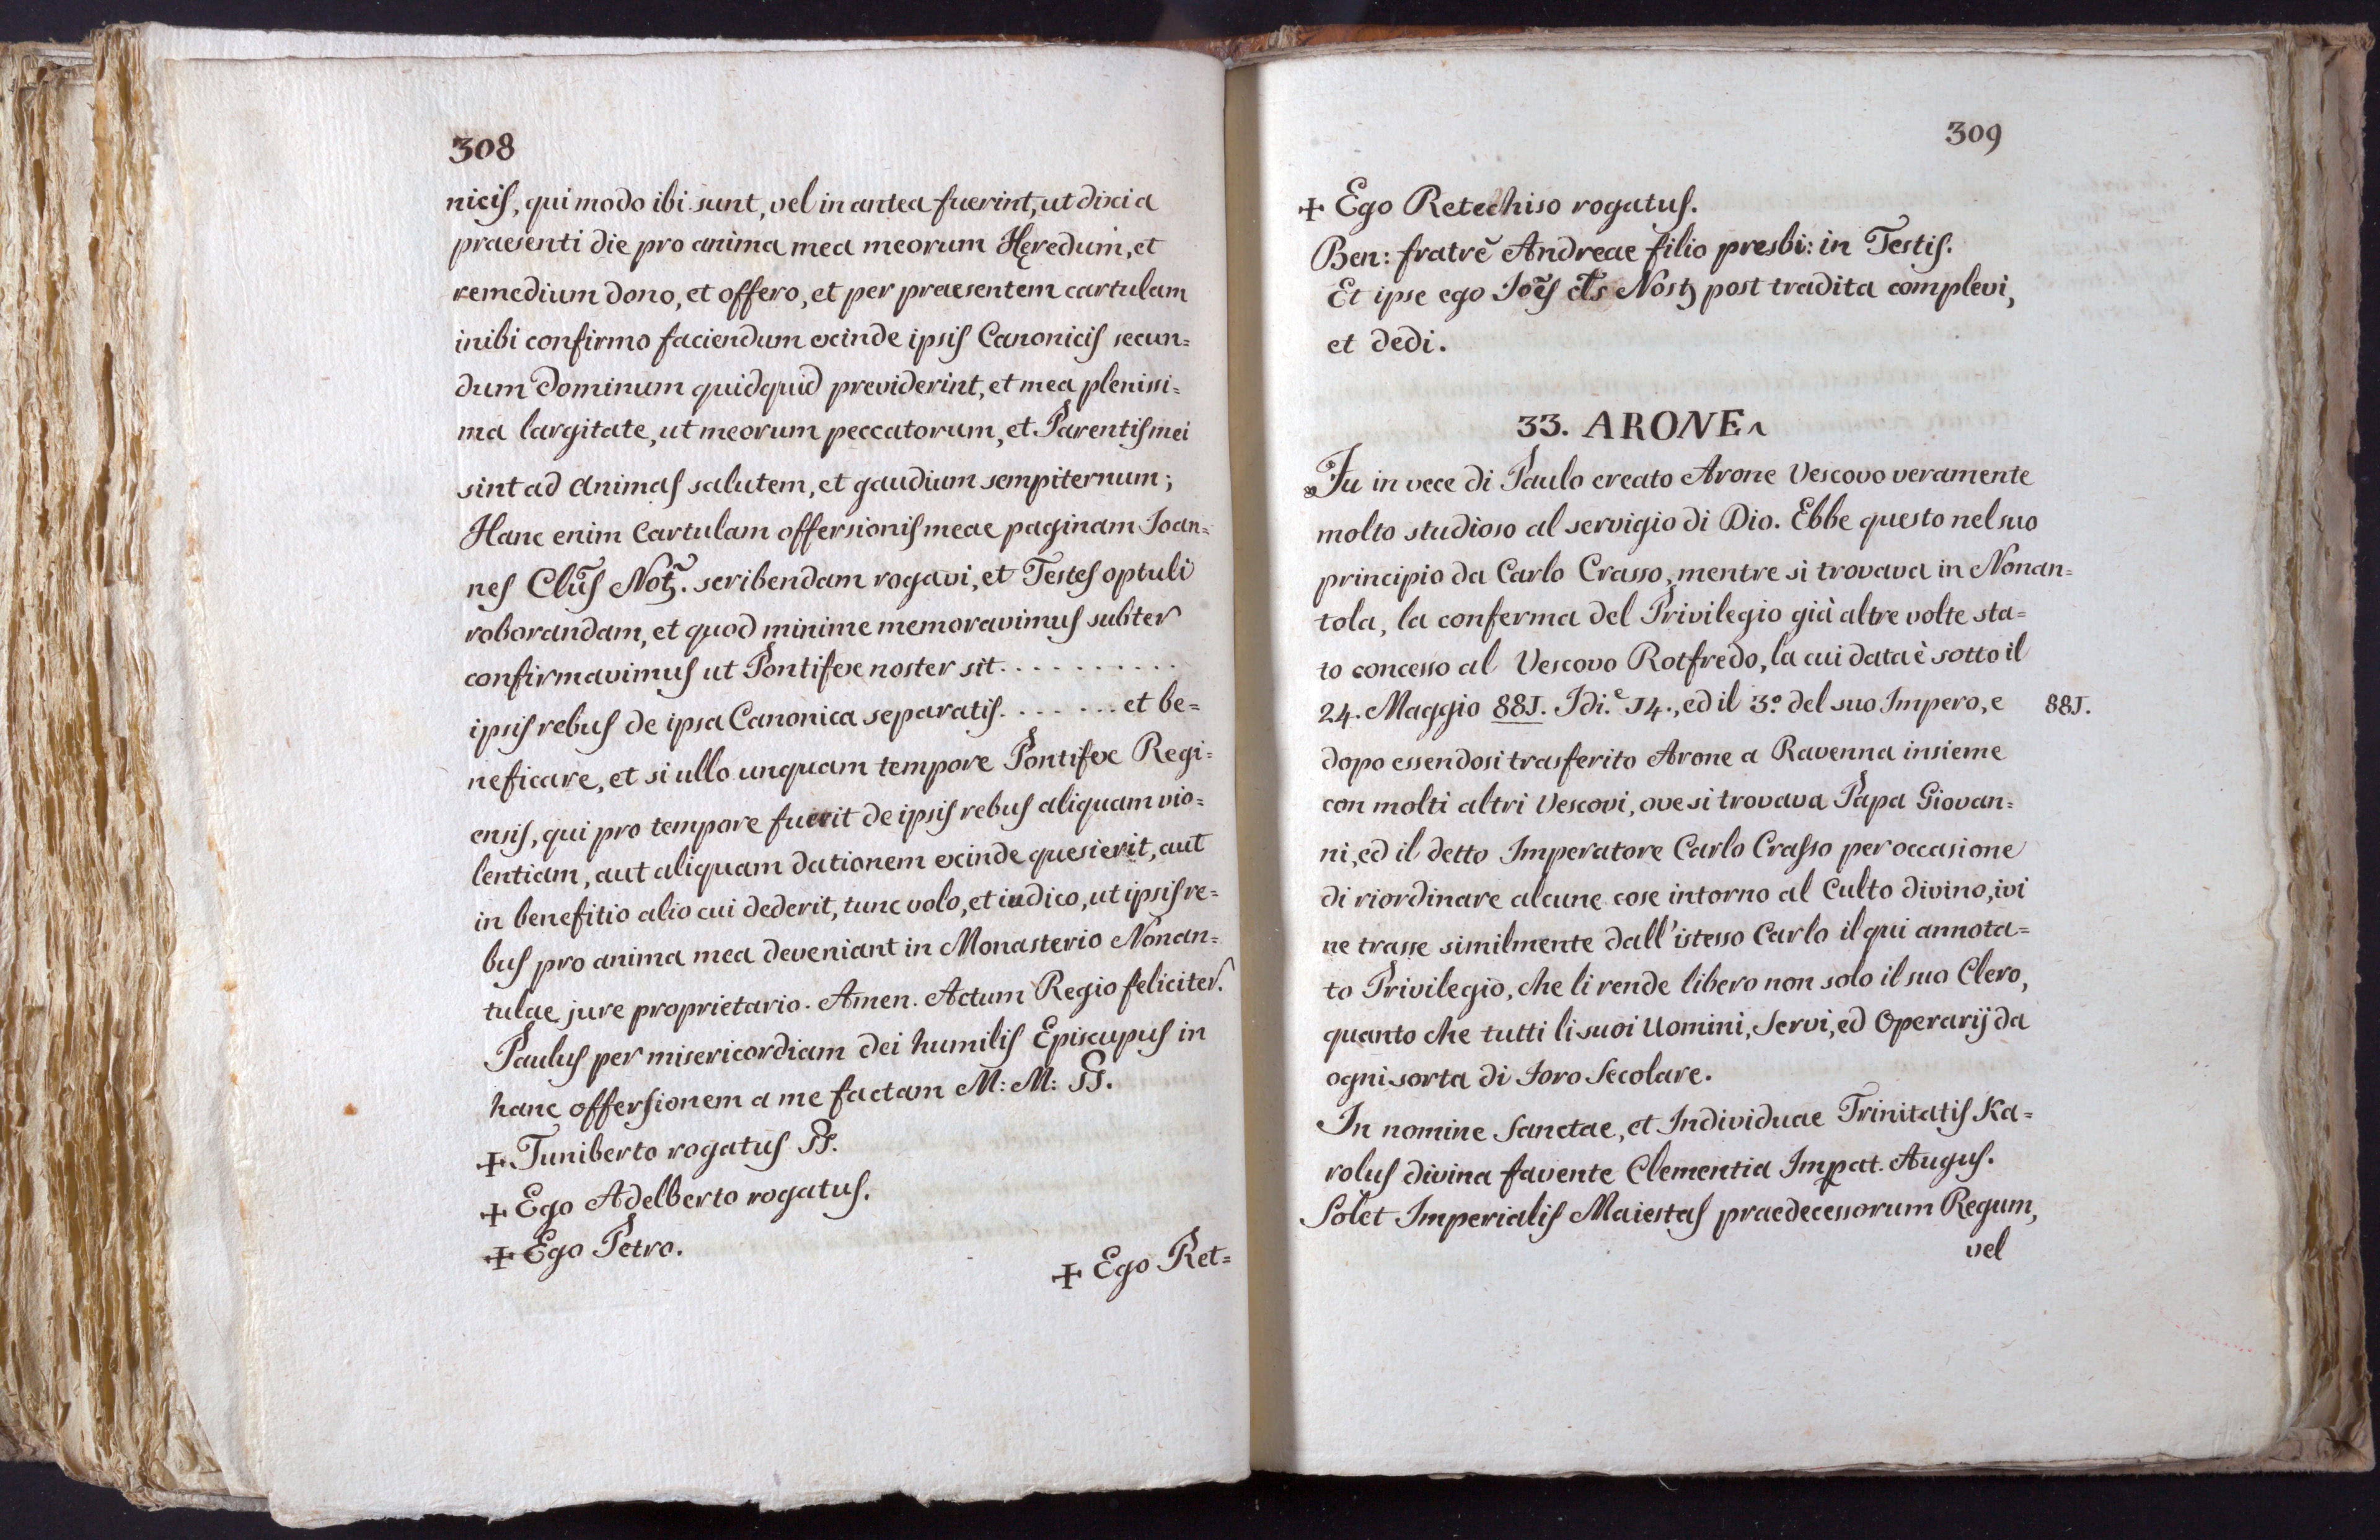 308
nicis, qui modo ibi sunt, vel in antea fuerint, ut dixi a
praesenti die pro anima mea meorum Hęredum, et
remedium dono, et offero, et per praesentem cartulam
inibi confirmo faciendum excinde ipsis Canonicis secun=
dum Dominum quidquid previderint, et mea plenissi=
ma largitate, ut meorum peccatorum, et Parentis mei
sint ad animas salutem, et gaudium sempiternum;
Hanc enim Cartulam offersionis meae paginam Joan=
nes Clũs Not̃. scribendam rogavi, et Testes optuli
roborandam, et quod minime memoravimus subter
confirmavimus ut Pontifex noster sit. . . . . . . . . . .
ipsis rebus de ipsa Canonica separatis. . . . . . . et be=
neficare, et si ullo unquam tempore Pontifex Regi=
ensis, qui pro tempore fuerit de ipsis rebus aliquam vio=
lentiam, aut aliquam dationem excinde quesierit, aut
in benefitio alio cui dederit, tunc volo, et iudico, ut ipsis re=
bus pro anima mea deveniant in Monasterio Nonan=
tulae jure proprietario. Amen. Actum Regio feliciter.
Paulus per misericordiam dei humilis Episcupus in
hanc offersionem a me factam M: M: SS.
+ Tuniberto rogatus SS.
+ Ego Adelberto rogatus.
+ Ego Petro.
+ Ego Ret=
309
+ Ego Retechiso rogatus.
Ben: fratrẽ Andreae filio presbi: in Testis.
Et ipse ego Joẽs cl̃s Nosꝫ post tradita complevi,
et dedi.
33. ARONE
Fu in vece di Paulo creato Arone Vescovo veramente
molto studioso al servigio di Dio. Ebbe questo nel suo
principio da Carlo Crasso, mentre si trovava in Nonan=
tola, la conferma del Privilegio già altre volte sta=
to concesso al Vescovo Rotfredo, la cui data è sotto il
24. Maggio 881. Idi.e 14., ed il 3.º del suo Impero, e 881.
dopo essendosi trasferito Arone a Ravenna insieme
con molti altri Vescovi, ove si trovava Papa Giovan=
ni, ed il detto Imperatore Carlo Crasso per occasione
di riordinare alcune cose intorno al Culto divino, ivi
ne trasse similmente dall'istesso Carlo il qui annota=
to Privilegio, che li rende libero non solo il suo Clero,
quanto che tutti li suoi Uomini, Servi, ed Operarij da
ogni sorta di Foro Secolare.
In nomine Sanctae, et Individuae Trinitatis Ka=
rolus divina favente Clementia Impat. Augus.
Solet Imperialis Maiestas praedecessorum Regum,
vel